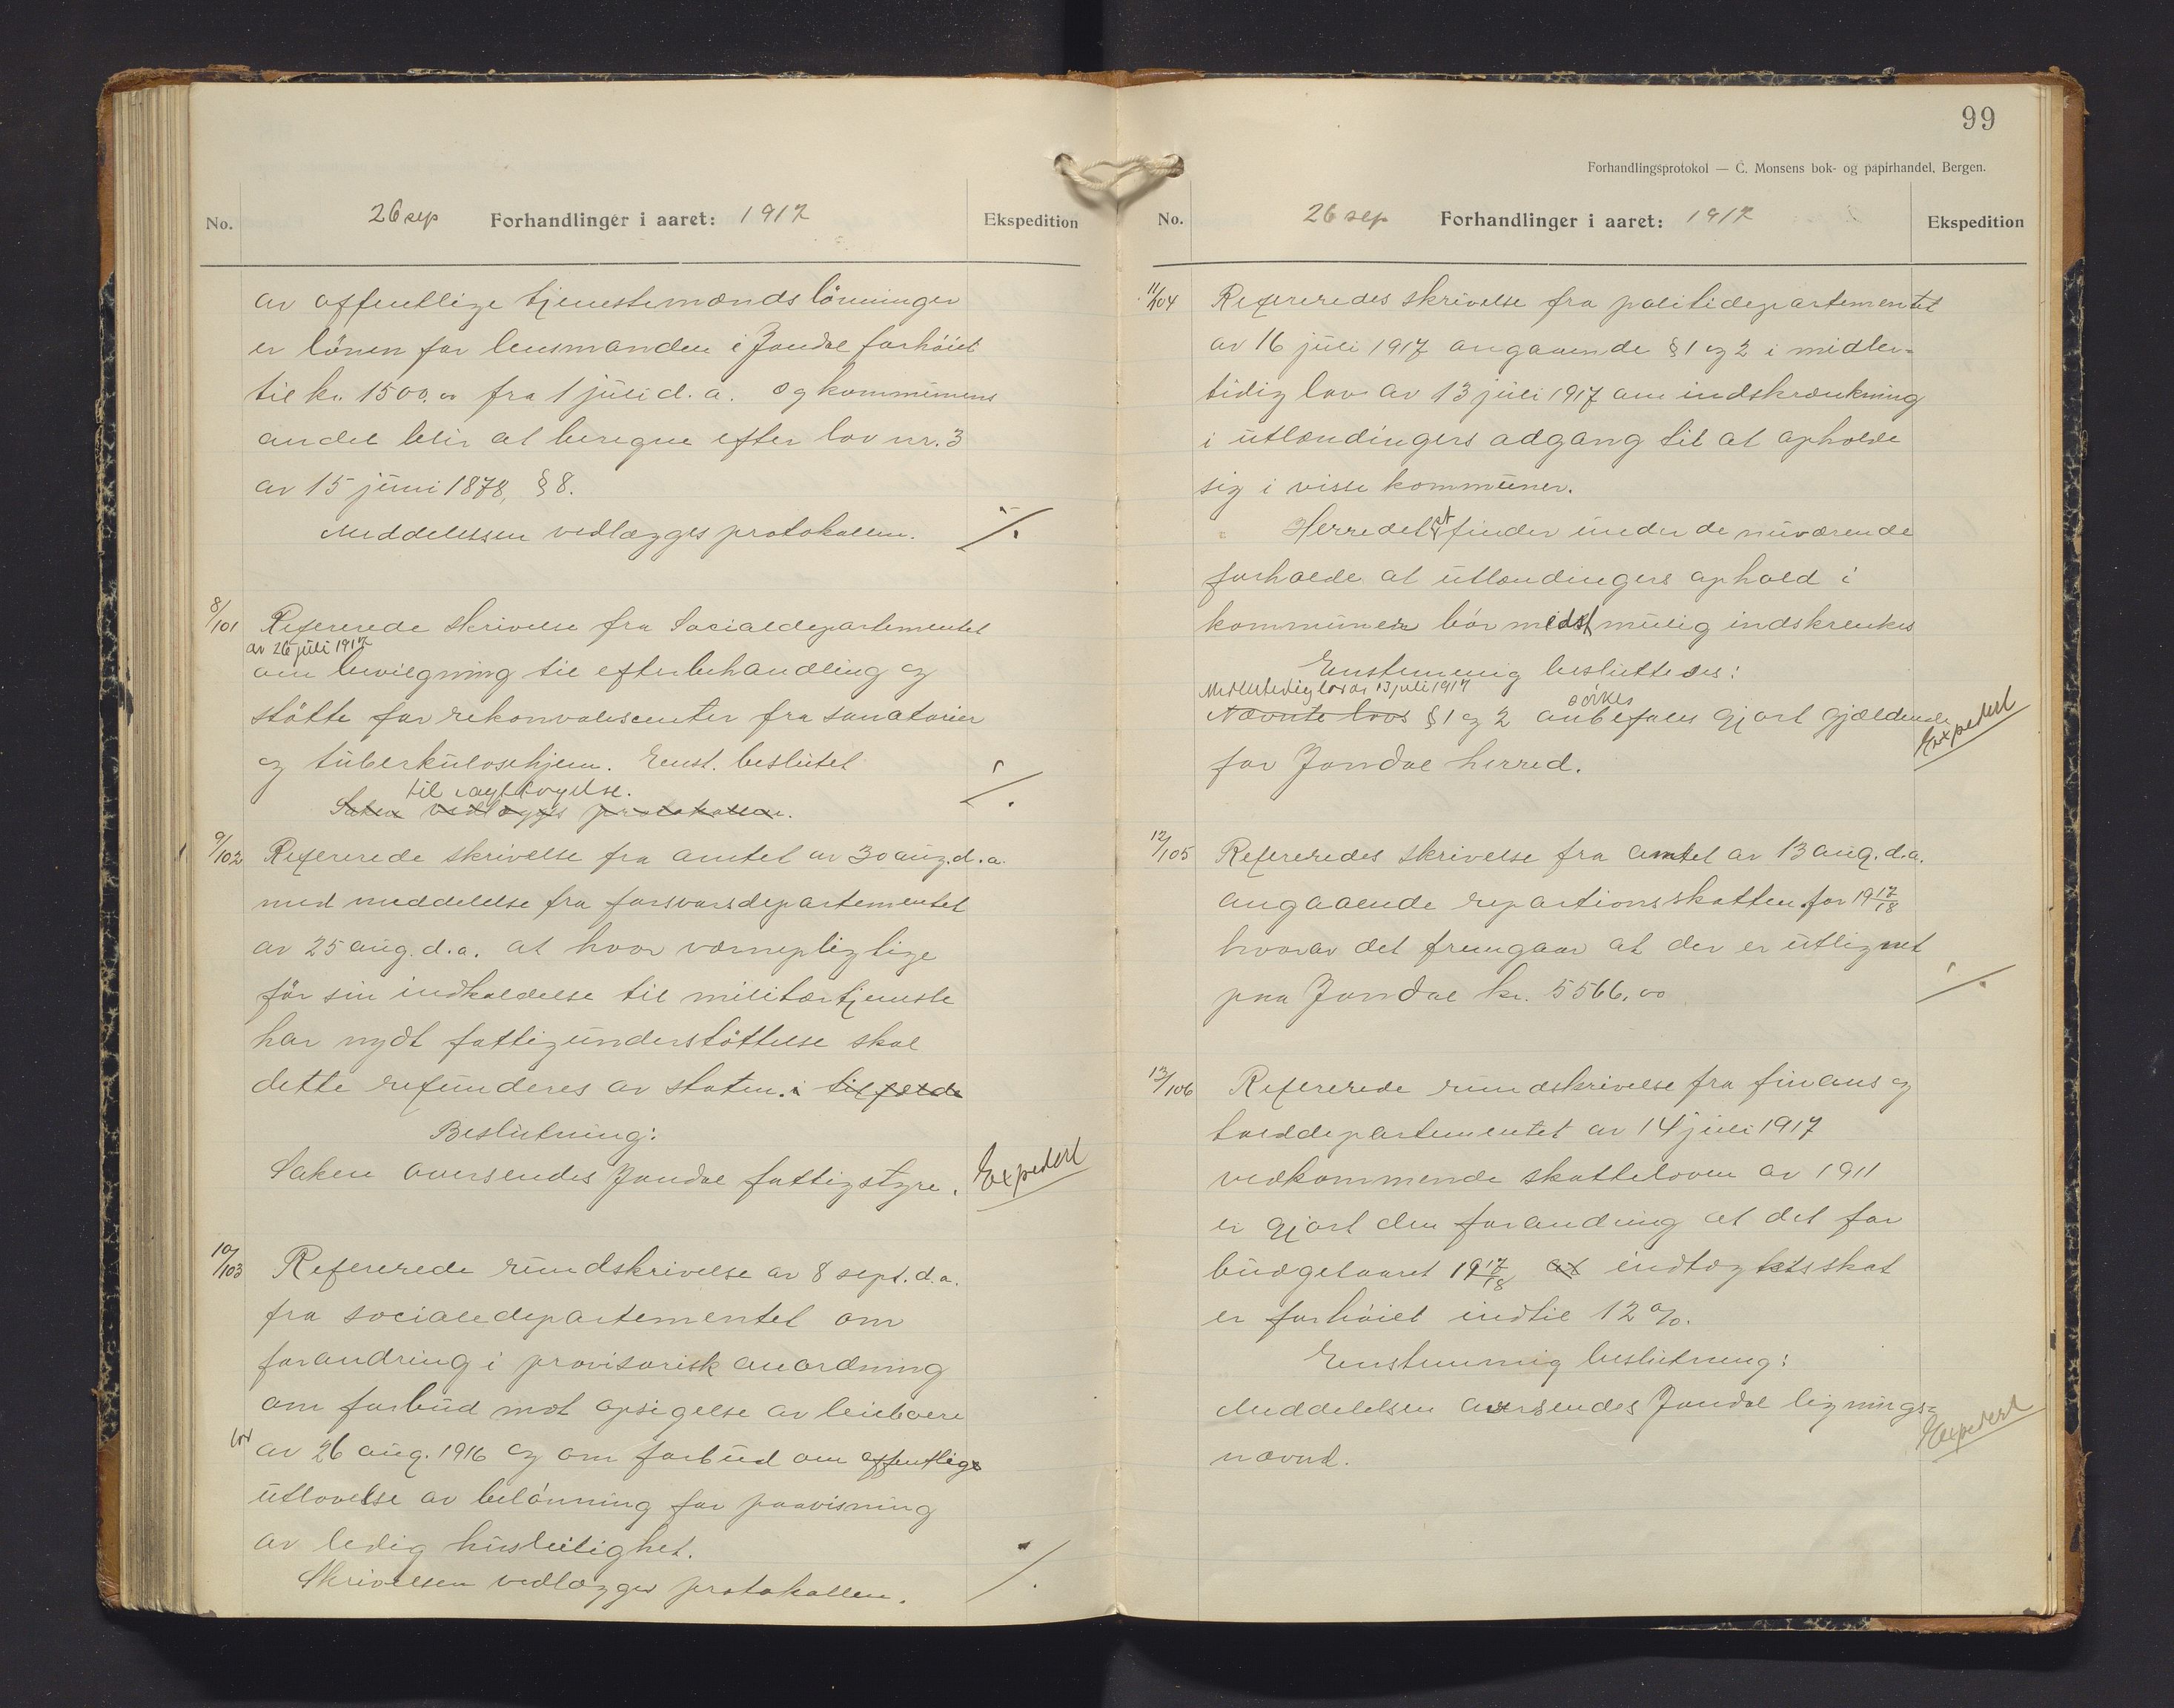 No.
26 sep Forhandlinger i aaret: 1917
Ekspedition
av offentlige tjenestemænds lönninger
er lönen for lensmanden i Jondal forhöiet
til kr. 1500,00 fra 1 juli d. a. og kommunens
andel blir at beregne efter lov nr. 3
av 15 juni 1878, § 8.
Meddelessen vedlægges protokollen.
·/.
8/101 Refererede skrivelse fra Socialdepartementet
av 26 juli 1917
om bevilgning til efterbehandling og
stötte for rekonvalescenter fra sanatorier
og tuberkulosehjem. Enst. beslutet
til iagttagelse.
Saken vedlægges protokollen.
·/.
9/102 Refererede skrivelse fra amtet av 30 aug. d. a.
med meddelelse fra forsvarsdepartementet
av 25 aug. d. a. at hvor værnepligtige
för sin indkaldelse til militærtjeneste
har nydt fattigunderstöttelse skal
dette refunderes av staten. i tilfælde
Beslutning:
Saken oversendes Jondal fattigstyre.
Expedert
10/103 Refererede rundskrivelse av 8 sept. d. a.
fra socialedepartementet om
forandring i provisorisk anordning
om forbud mot opsigelse av leieboere
lov av 26 aug. 1916 og om forbud om offentlige
utlovelse av belönning for paavisning
av ledig husleilighet.
Skrivelsen vedlægges protokollen.
·/.
99
Forhandlingsprotokol — C. Monsens bok- og papirhandel, Bergen.
No.
26 sep Forhandlinger i aaret: 1917
Ekspedition
11/104 Refereredes skrivelse fra politidepartementet
av 16 juli 1917 angaaende § 1 og 2 i midler-
tidig lov av 13 juli 1917 om indskrænkning
i utlændingers adgang til at opholde
sig i visse kommuner.
Herredet st finder under de nuværende
forholde at utlændingers ophold i
kommunen bör mest mulig indskrenkes
Enstemmig besluttedes:
Midlertidig lov av 13 juli 1917
sökes
Nævnte lovs § 1 og 2 anbefales gjort gjældende
for Jondal herred.
Expedert
12/105 Refereredes skrivelse fra amtet av 13 aug. d. a.
angaaende repartionsskatten for 1917/18
hvorav det fremgaar at der er utlignet
paa Jondal kr. 5566,00
·/.
13/106 Refererede rundskrivelse fra finans og
tolddepartementet av 14 juli 1917
vedkommende skatteloven av 1911
er gjort den forandring at det for
budgetaaret 1917/18 at indtægtsskat
er forhöiet indtil 12 %.
Enstemmig beslutning:
Meddelelsen oversendes Jondal lignings-
nævnd.
Expedert